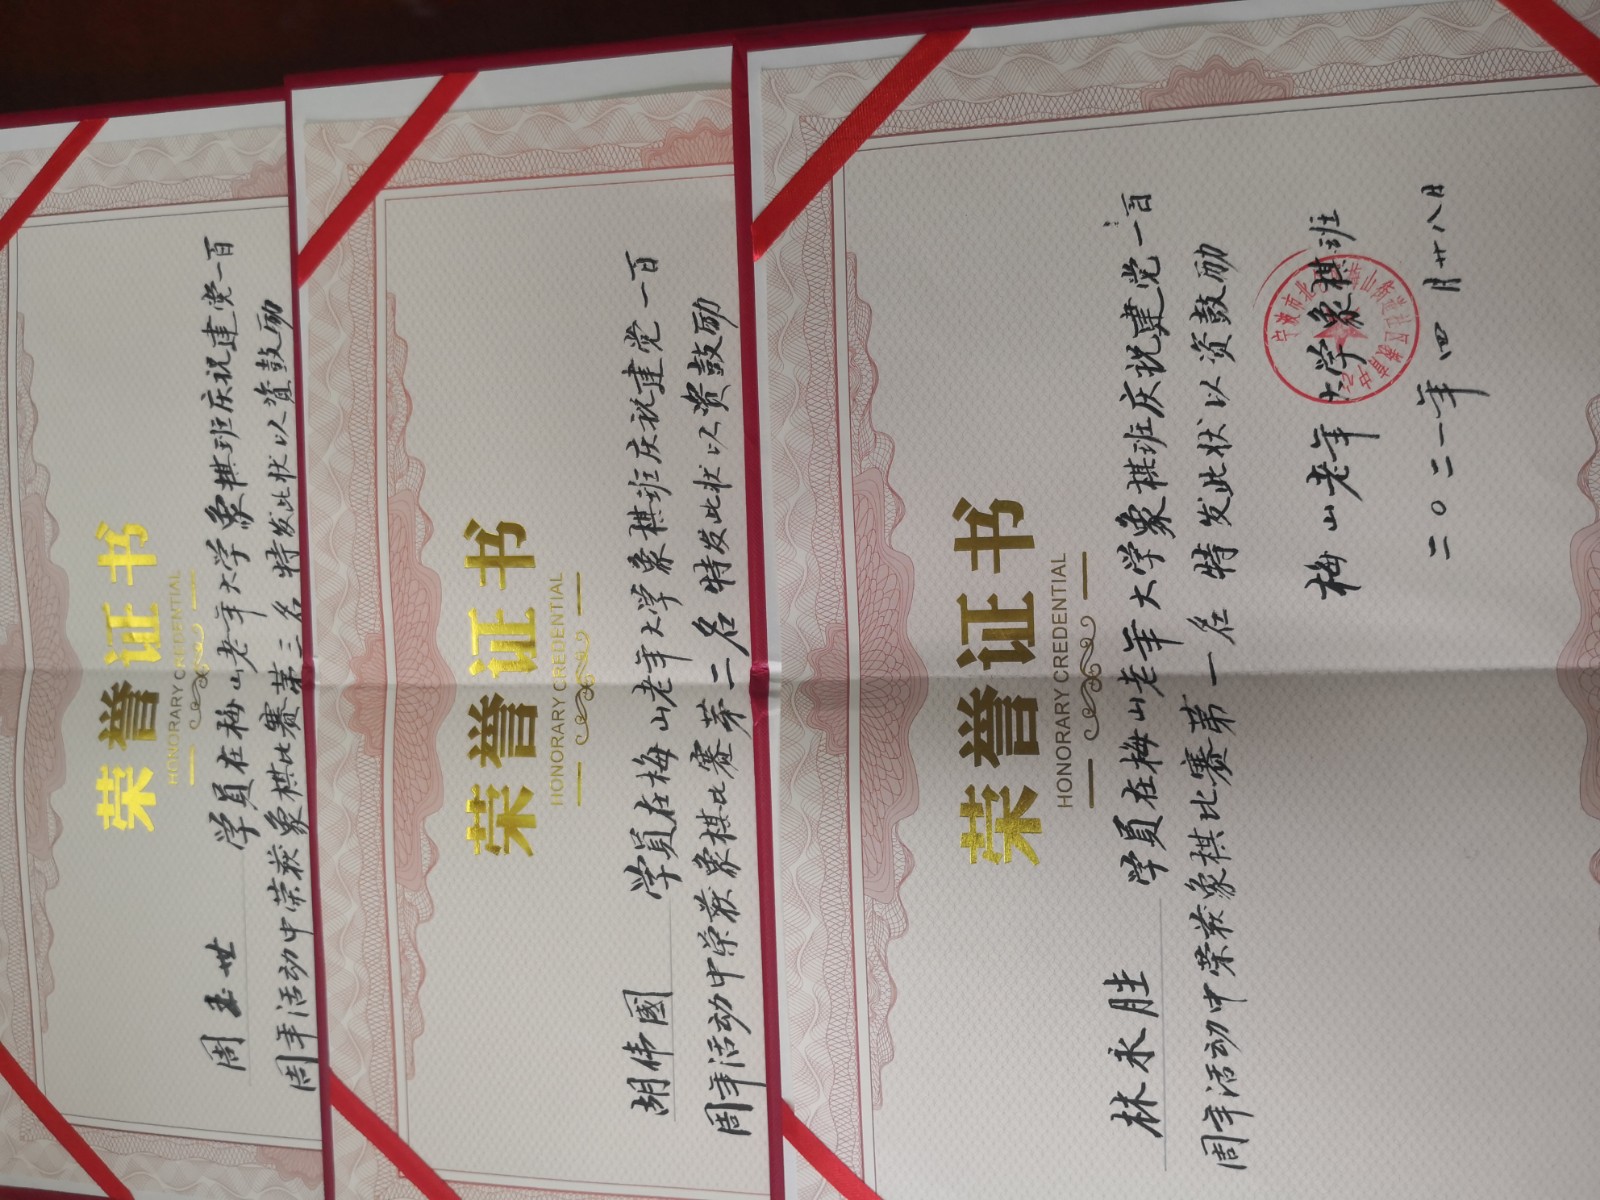 荣誉证书
HONORARY CREDENTIAL
周 世 学員在梅山老年大学象棋班庆祝建党一百
周年活动中荣获象棋比赛第三名 特发此状以资鼓励
荣誉证书
HONORARY CREDENTIAL
胡伟國 学員在梅山老年大学象棋班庆祝建党一百
周年活动中荣获象棋比赛第二名 特发此状以资鼓励
荣誉证书
HONORARY CREDENTIAL
林永胜 学員在梅山老年大学象棋班庆祝建党一百
周年活动中荣获象棋比赛第一名 特发此状以资鼓励
梅山老年大学象棋班
宁波市北 山街道社区教育中心
二〇二一年四月廿八日